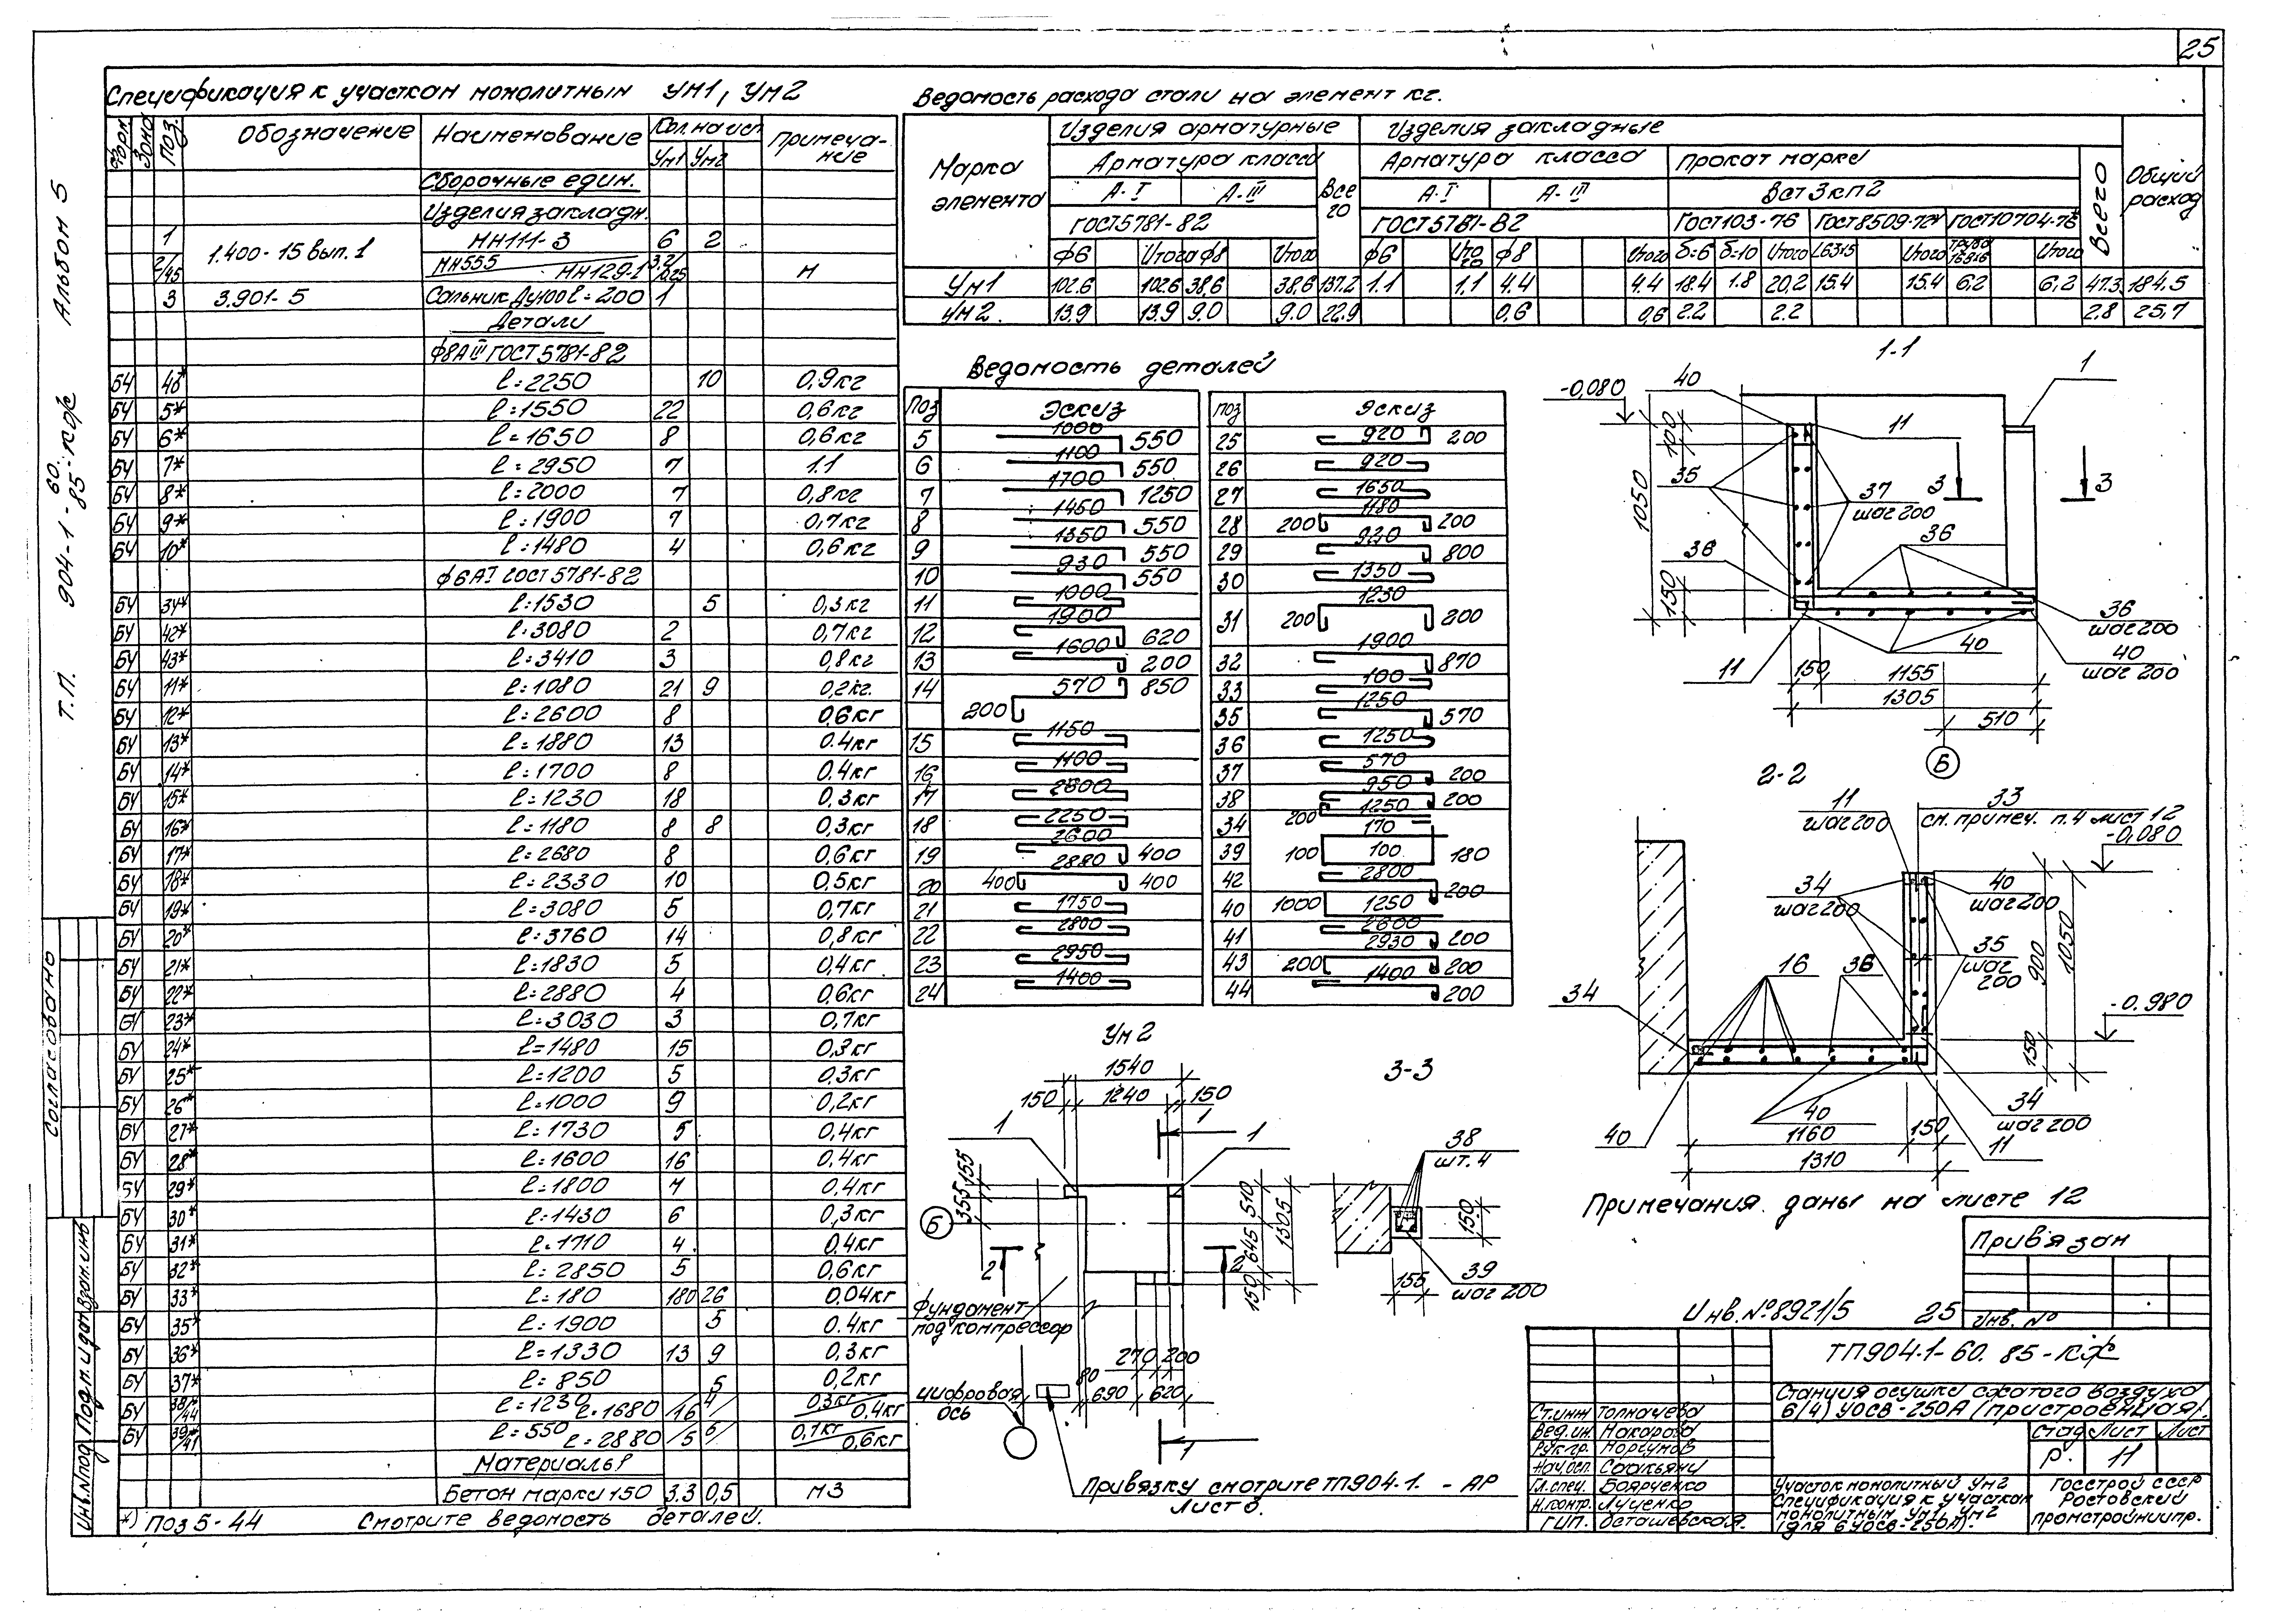 25
Спецификация к участкам монолитным Ум1, Ум2
Форм. Зона Поз. Обозначение Наименование Кол. на исп. Примечание
Ум1 Ум2
Сборочные един.
Изделия закладн.
1 МН111-3 6 2
1.400-15 вып.1
2/45 МН555 МН129-2 м
3 3.901-5 Сальник Ду100 ℓ=200 1
Детали
ф8АIII ГОСТ 5781-82
БЧ 40* ℓ=2250 10 0,9кг
БЧ 5* ℓ=1550 22 0,6кг
БЧ 6* ℓ=1650 8 0,6кг
БЧ 7* ℓ=2950 7 1.1
БЧ 8* ℓ=2000 7 0,8кг
БЧ 9* ℓ=1900 7 0,7кг
БЧ 10* ℓ=1480 4 0,6кг
ф6АI ГОСТ 5781-82
БЧ 34* ℓ=1530 5 0,3кг
БЧ 42* ℓ=3080 2 0,7кг
БЧ 43* ℓ=3410 3 0,8кг
БЧ 11* ℓ=1080 21 9 0,2кг.
БЧ 12* ℓ=2600 8 0,6кг
БЧ 13* ℓ=1880 13 0.4кг
БЧ 14* ℓ=1700 8 0.4кг
БЧ 15* ℓ=1230 18 0,3кг
БЧ 16* ℓ=1180 8 8 0,3кг
БЧ 17* ℓ=2680 8 0,6кг
БЧ 18* ℓ=2330 10 0,5кг
БЧ 19* ℓ=3080 5 0,7кг
БЧ 20* ℓ=3760 14 0,8кг
БЧ 21* ℓ=1830 5 0,4кг
БЧ 22* ℓ=2880 4 0,6кг
БЧ 23* ℓ=3030 3 0,7кг
БЧ 24* ℓ=1480 15 0,3кг
БЧ 25* ℓ=1200 5 0,3кг
БЧ 26* ℓ=1000 9 0,2кг
БЧ 27* ℓ=1730 5 0,4кг
БЧ 28* ℓ=1600 16 0,4кг
БЧ 29* ℓ=1800 7 0,4кг
БЧ 30* ℓ=1430 6 0,3кг
БЧ 31* ℓ=1710 4 0.4кг
БЧ 32* ℓ=2850 5 0,6кг
БЧ 33* ℓ=180 180 26 0.04кг
БЧ 35* ℓ=1900 5 0.4кг
БЧ 36* ℓ=1330 13 9 0,3кг
БЧ 37* ℓ=850 5 0,2кг
БЧ 38*/44 ℓ=1230 ℓ=1680 /16 4/ 0,3кг/0,4кг
БЧ 39*/41 ℓ=550 ℓ=2880 /5 6/ 0,1кг/0,6кг
Материалы
Бетон марки 150 3.3 0,5 м3
*) Поз 5-44 Смотрите ведомость деталей.
Ведомость расхода стали на элемент кг.
Марка элемента
Изделия арматурные Изделия закладные
Общий расход
Арматура класса Всего Арматура класса Прокат марки Всего
А-I А-III А-I А-III Вст3кп2
ГОСТ5781-82 ГОСТ5781-82 ГОСТ103-76 ГОСТ8509-72* ГОСТ10704-76
ф6 Итого ф8 Итого ф6 Итого ф8 Итого δ=6 δ=10 Итого L63х5 Итого Итого
Ум1 102.6 102.6 38,6 38,6 137.2 1.1 1,1 4.4 4.4 18.4 1.8 20,2 15.4 15.4 6.2 6,2 47.3 184.5
Ум2 13.9 13.9 9.0 9.0 22.9 0,6 0,6 2.2 2.2 2.8 25,7
Ведомость деталей
Поз Эскиз
5 1000 550
6 1100 550
7 1700 1250
8 1450 550
9 1350 550
10 930 550
11 1000
12 1900 620
13 1600 200
14 570 850 200
15 1150
16 1100
17 2600
18 2250
19 2600 400
20 400 2880 400
21 1750
22 2800
23 2950
24 1400
Поз Эскиз
25 920 200
26 920
27 1650
28 200 1180 200
29 920 800
30 1350
31 200 1230 200
32 1900 870
33 100
35 1250 570
36 1250
37 570 200
38 950 200
34 200 1250
39 100 170 100 180
42 2800 200
40 1000 1250
41 2600 200
43 200 2930 200
44 1400 200
1-1
-0,080 40 1
100 1050 150
11
35 37 шаг 200
3 3
38 36
36 шаг 200
40 40 шаг 200
11 150 1155
1305
510
Б
2-2
11 шаг 200
33 см. примеч. п.4 лист 12
-0,080
34 шаг 200
40 шаг 200
35 шаг 200
900 1050
16 36
34 -0.980
150
34 шаг 200
40 40 11
1160 150
1310
Ум2
1540
150 1240 150
1 1 1
155 355
510 1305 645 150
Б
2 2
фундамент под компрессор
270 200
80 690 620
цифровая ось
1
Привязку смотрите ТП904-1. - АР
лист 8.
3-3
38 шт. 4
150
155
39 шаг 200
Примечания даны на листе 12
Привязан
Инв. №
Инв. №8921/5 25
ТП904-1-60.85-КЖ
Станция осушки сжатого воздуха
6(4) УОСВ-250А (пристроенная).
Ст.инж Толмачева
Вед.ин. Макарова
Рук.гр. Моргунов
Нач.осп. Саакьянц
Гл.спец. Боярченко
Н.контр. Луценко
ГИП. Осташевская.
Стад. Лист Лист
Р. 11
Участок монолитный Ум2
Спецификация к участкам
монолитным Ум1, Ум2
(для 6УОСВ-250А).
Госстрой СССР
Ростовский
промстройниипр.
Альбом 5
Т.П. 904-1-60.85-КЖ
Согласовано
Взам. инв
Подп. и дата
Инв. № под